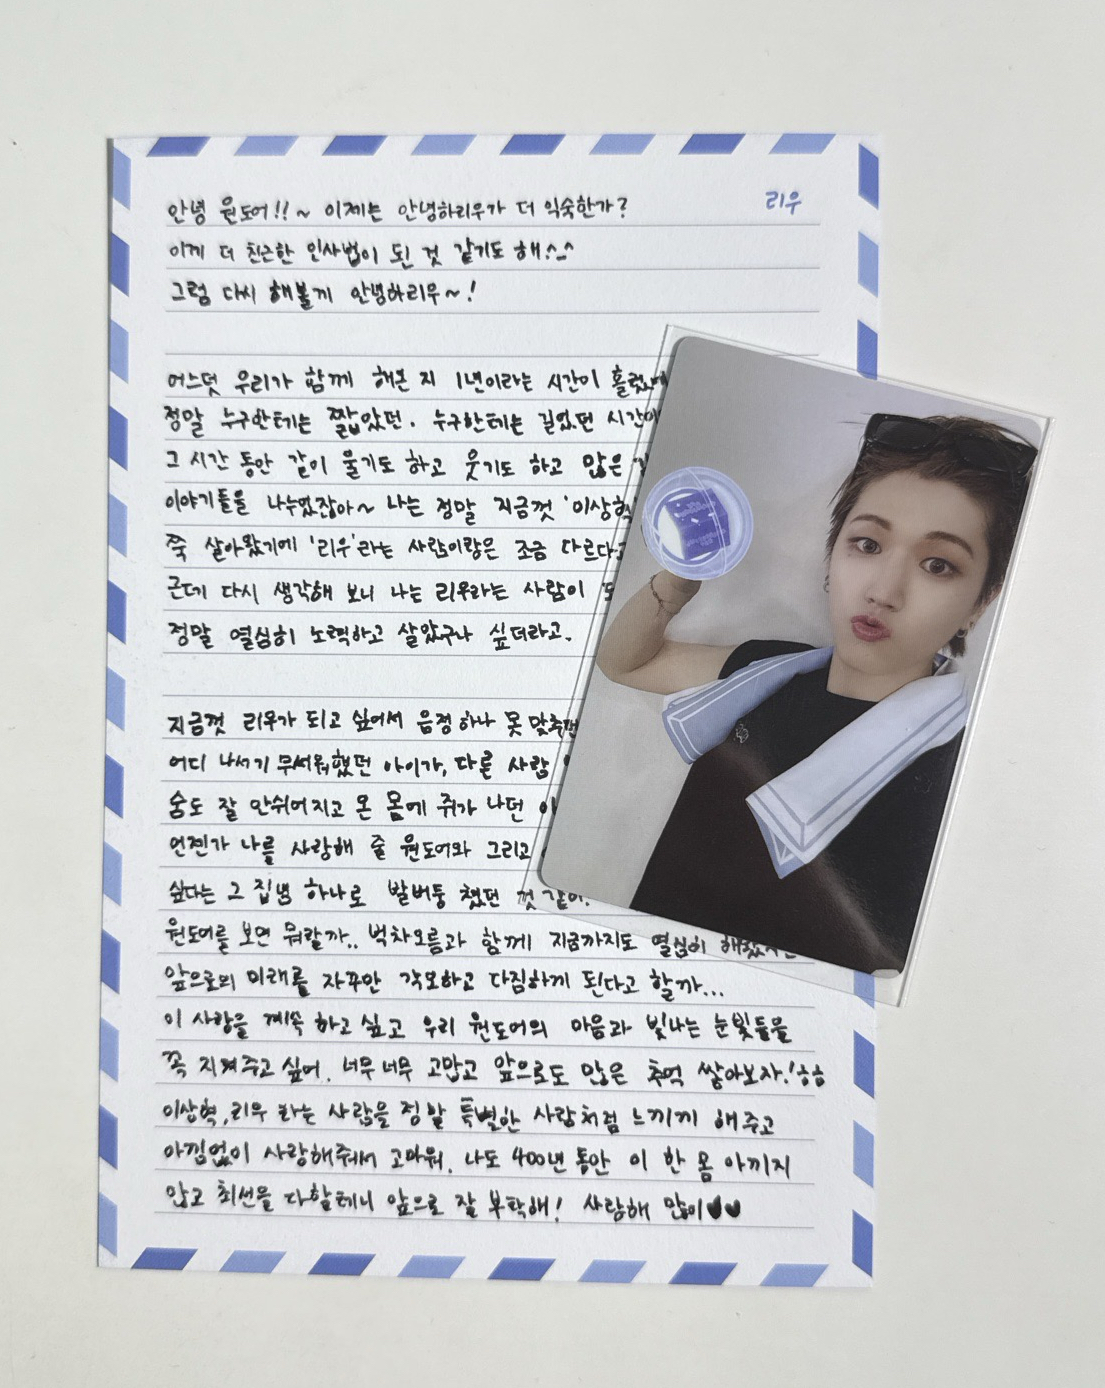 리우
안녕 원도어!!~ 이제는 안녕하리우가 더 익숙한가?
이게 더 친근한 인사법이 된 것 같기도 해^_^
그럼 다시 해볼게 안녕하리우~!
어느덧 우리가 함께 해온 지 1년이라는 시간이 흘렀
정말 누구한테는 짧았던. 누구한테는 길었던 시간
그 시간 동안 같이 울기도 하고 웃기도 하고 많은
이야기들을 나누었잖아~ 나는 정말 지금껏 '이상혁
쭉 살아왔기에 '리우'라는 사람이랑은 조금 다르다
근데 다시 생각해 보니 나는 리우라는 사람이
정말 열심히 노력하고 살았구나 싶더라고.
지금껏 리우가 되고 싶어서 음정 하나 못 맞추
어디 나서기 무서워했던 아이가, 다른 사람
숨도 잘 안쉬어지고 온 몸에 쥐가 나던
언젠가 나를 사랑해 줄 원도어와 그리고
싶다는 그 집념 하나로 발버둥 쳤던 것 같아.
원도어를 보면 뭐랄까.. 벅차오름과 함께 지금까지도 열심히 해왔지만
앞으로의 미래를 자꾸만 각오하고 다짐하게 된다고 할까...
이 사랑을 계속 하고 싶고 우리 원도어의 마음과 빛나는 눈빛들을
꼭 지켜주고 싶어. 너무 너무 고맙고 앞으로도 많은 추억 쌓아보자!ㅎㅎ
이상혁, 리우 라는 사람을 정말 특별한 사람처럼 느끼게 해주고
아낌없이 사랑해줘서 고마워. 나도 400년 동안 이 한 몸 아끼지
않고 최선을 다할테니 앞으로 잘 부탁해! 사랑해 많이♥♥